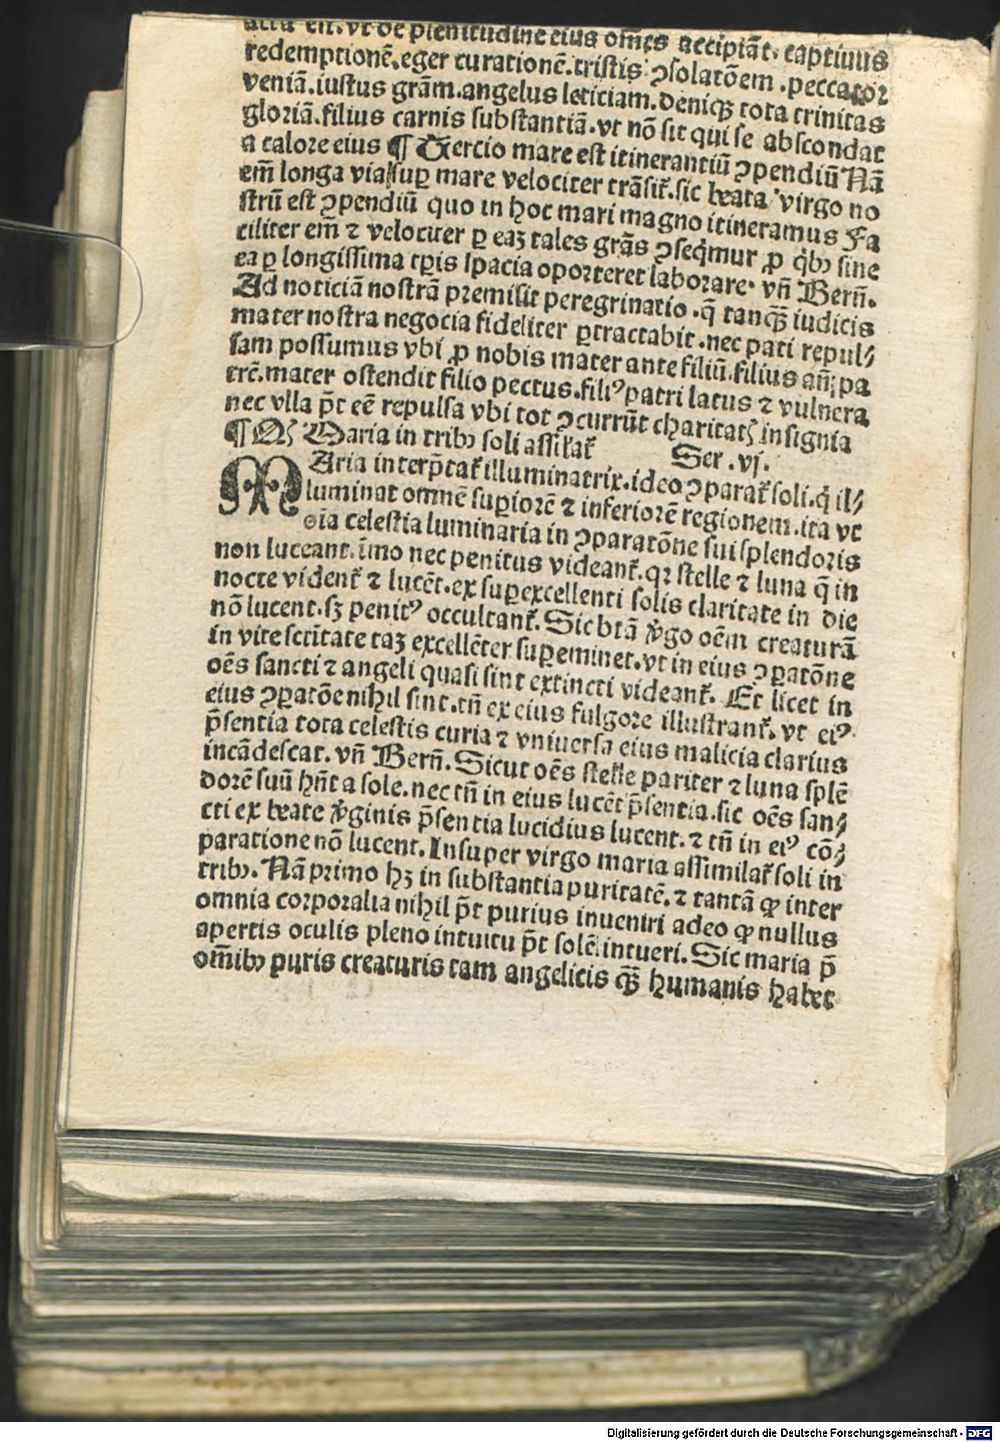 vt de plenitudine eius om̄es accipiāt. captiuus
redemptionē. eger curationē. tristis ꝯsolatōem. peccator
veniā. iustus grām. angelus leticiam. deniqꝫ tota trinitas
gloriā. filius carnis substantiā. vt nō sit qui se abscondat
a calore eius ¶ Tercio mare est itinerantiū ꝯpendiū Nā
em̄ longa via suꝑ mare velociter trāsit᷑. sic beata virgo no
strū est ꝯpendiū quo in hoc mari magno itineramus Fa
ciliter em̄ ⁊ velociter ꝑ eaꝫ tales grās ꝯseq̄mur ꝓ qͥbꝰ sine
ea ꝑ longissima tꝑis spacia oporteret laborare. vn̄ Bern̄.
Ad noticiā nostrā premisit peregrinatio. q̄ tanqꝫ̄ iudicis
mater nostra negocia fideliter ꝑtractabit. nec pati repul⸗
sam possumus vbi ꝓ nobis mater ante filiū. filius an̄ pa
trē. mater ostendit filio pectus. filiꝰ patri latus ⁊ vulnera
nec vlla p̄t eē repulsa vbi tot ꝯcurrūt charitatꝭ insignia
¶ Qꝫ Maria in tribꝰ soli assilat᷑ Ser. vj.
MAria interp̄tat᷑ illuminatrix. ideo ꝯparat᷑ soli. q̇ il⸗
luminat omnē suꝑiorē ⁊ inferiorē regionem. ita vt
oīa celestia luminaria in ꝯparatōne sui splendoris
non luceant. īmo nec penitus videant᷑. qꝛ stelle ⁊ luna q̄ in
nocte vident᷑ ⁊ lucēt. ex suꝑexcellenti solis claritate in die
nō lucent. sꝫ penitꝰ occultant᷑. Sic btā v̊go oēm creaturā
in vite scītate taꝫ excellēter suꝑeminet. vt in eius ꝯꝑatōne
oēs sancti ⁊ angeli quasi sint extincti videant᷑. Et licet in
eius ꝯꝑatōe nihil sint. tn̄ ex eius fulgore illustrant᷑. vt eiꝰ
p̄sentia tota celestis curia ⁊ vniuersa eius malicia clarius
incādescat. vn̄ Bern̄. Sicut oēs stelle pariter ⁊ luna splē
dorē suū hn̄t a sole. nec tn̄ in eius lucēt p̄sentia. sic oēs san⸗
cti ex beate v̊ginis p̄sentia lucidius lucent. ⁊ tn̄ in eiꝰ cō⸗
paratione nō lucent. Insuper virgo maria assimilat᷑ soli in
tribꝰ. Nā primo hꝫ in substantia puritatē. ⁊ tantā ꝙ inter
omnia corporalia nihil p̄t purius inueniri adeo ꝙ nullus
apertis oculis pleno intuitu p̄t solē intueri. Sic maria p̄
om̄ibꝰ puris creaturis tam angelicis qꝫ̄ humanis habet
Digitalisierung gefördert durch die Deutsche Forschungsgemeinschaft - DFG